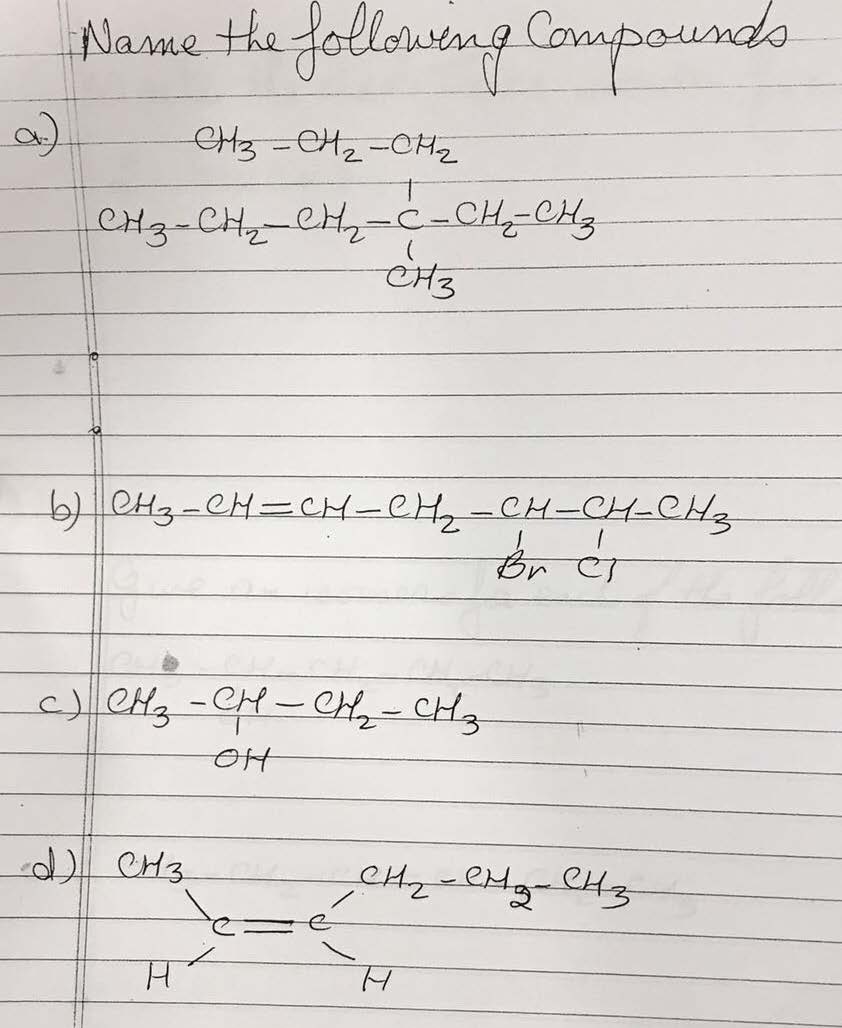 Name the following Compounds
a) CH3-CH2-CH2
|
CH3-CH2-CH2-C-CH2-CH3
|
CH3
b) CH3-CH=CH-CH2-CH-CH-CH3
| |
Br Cl
c) CH3-CH-CH2-CH3
|
OH
d) CH3 CH2-CH2-CH3
C=C
H H